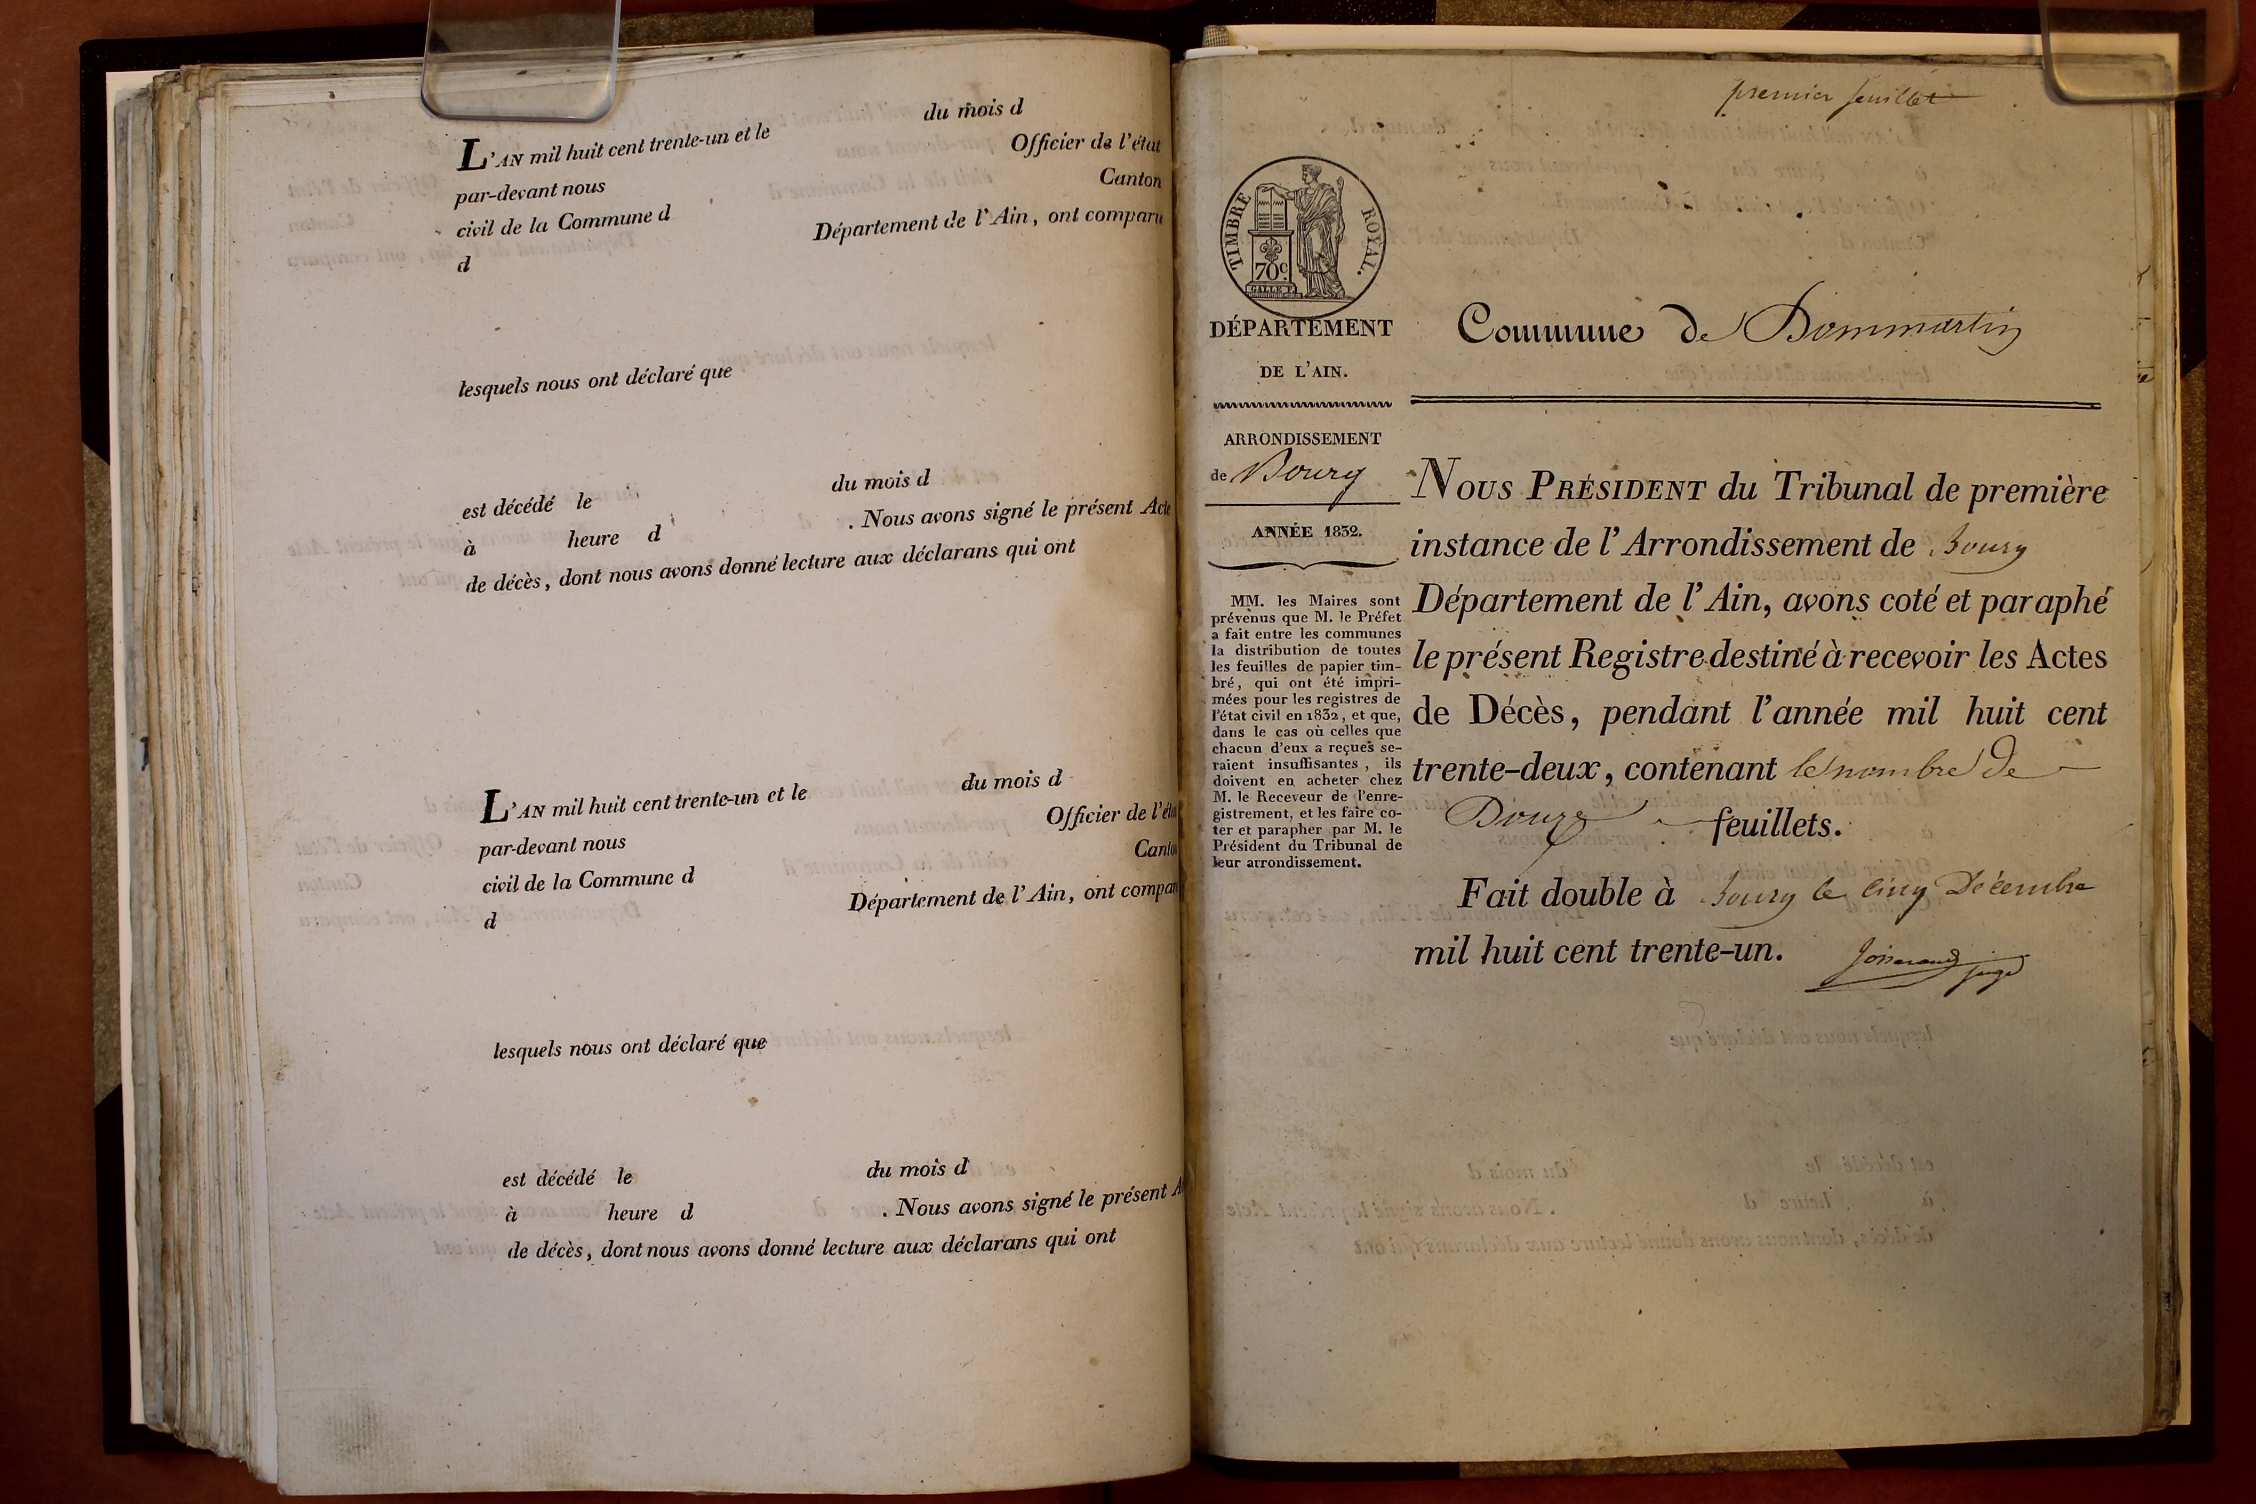 L'AN mil huit cent trente-un et le du mois d
par-devant nous Officier de l'état
civil de la Commune d Canton
d Département de l'Ain, ont comparu
lesquels nous ont déclaré que
est décédé le du mois d
à heure d . Nous avons signé le présent Acte
de décès, dont nous avons donné lecture aux déclarans qui ont
L'AN mil huit cent trente-un et le du mois d
par-devant nous Officier de l'état
civil de la Commune d Canton
d Département de l'Ain, ont compar
lesquels nous ont déclaré que
est décédé le du mois d
à heure d . Nous avons signé le présent A
de décès, dont nous avons donné lecture aux déclarans qui ont
premier feuillet
TIMBRE ROYAL.
70c.
GALLE F.
DÉPARTEMENT
DE L'AIN.
ARRONDISSEMENT
de Bourg
ANNÉE 1832.
MM. les Maires sont
prévenus que M. le Préfet
a fait entre les communes
la distribution de toutes
les feuilles de papier tim-
bré, qui ont été impri-
mées pour les registres de
l'état civil en 1832, et que,
dans le cas où celles que
chacun d'eux a reçues se-
raient insuffisantes, ils
doivent en acheter chez
M. le Receveur de l'enre-
gistrement, et les faire co-
ter et parapher par M. le
Président du Tribunal de
leur arrondissement.
Commune de Dommartin
NOUS PRÉSIDENT du Tribunal de première
instance de l'Arrondissement de Bourg
Département de l'Ain, avons coté et paraphé
le présent Registre destiné à recevoir les Actes
de Décès, pendant l'année mil huit cent
trente-deux, contenant le nombre de
Douze feuillets.
Fait double à Bourg le cinq Décembre
mil huit cent trente-un.
Josserand juge